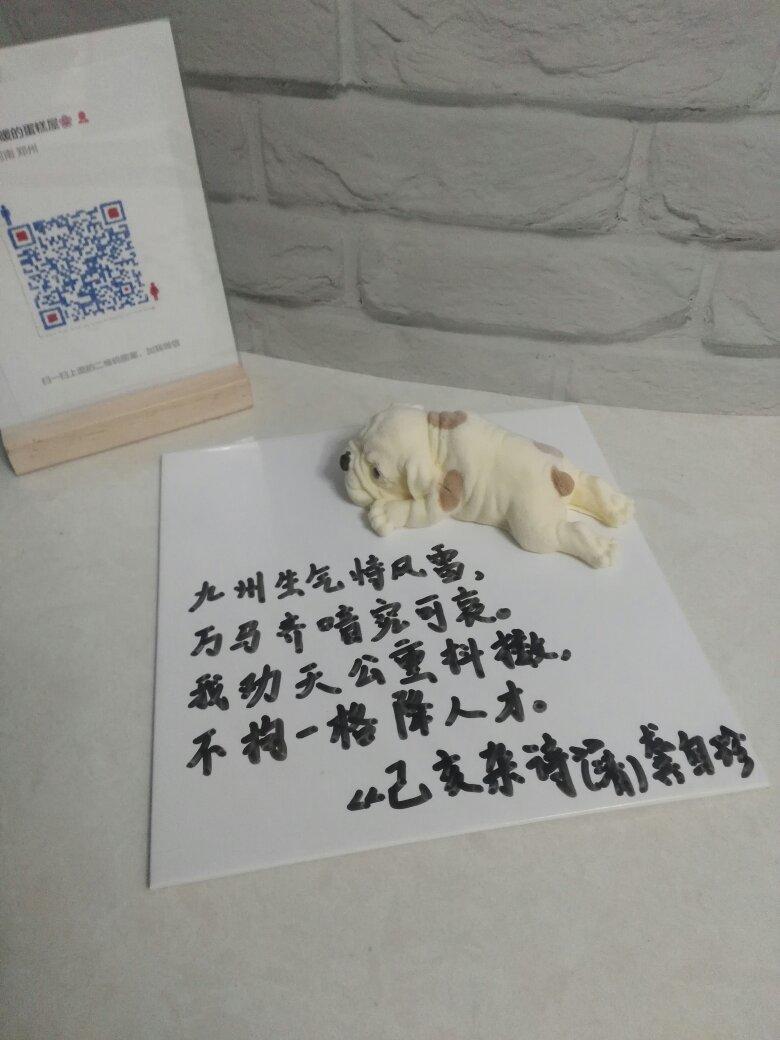 的蛋糕屋
南 郑州
扫一扫上面的二维码图案，加我微信
九州生气恃风雷，
万马齐喑究可哀。
我劝天公重抖擞，
不拘一格降人才。
“己亥杂诗”(清)龚自珍